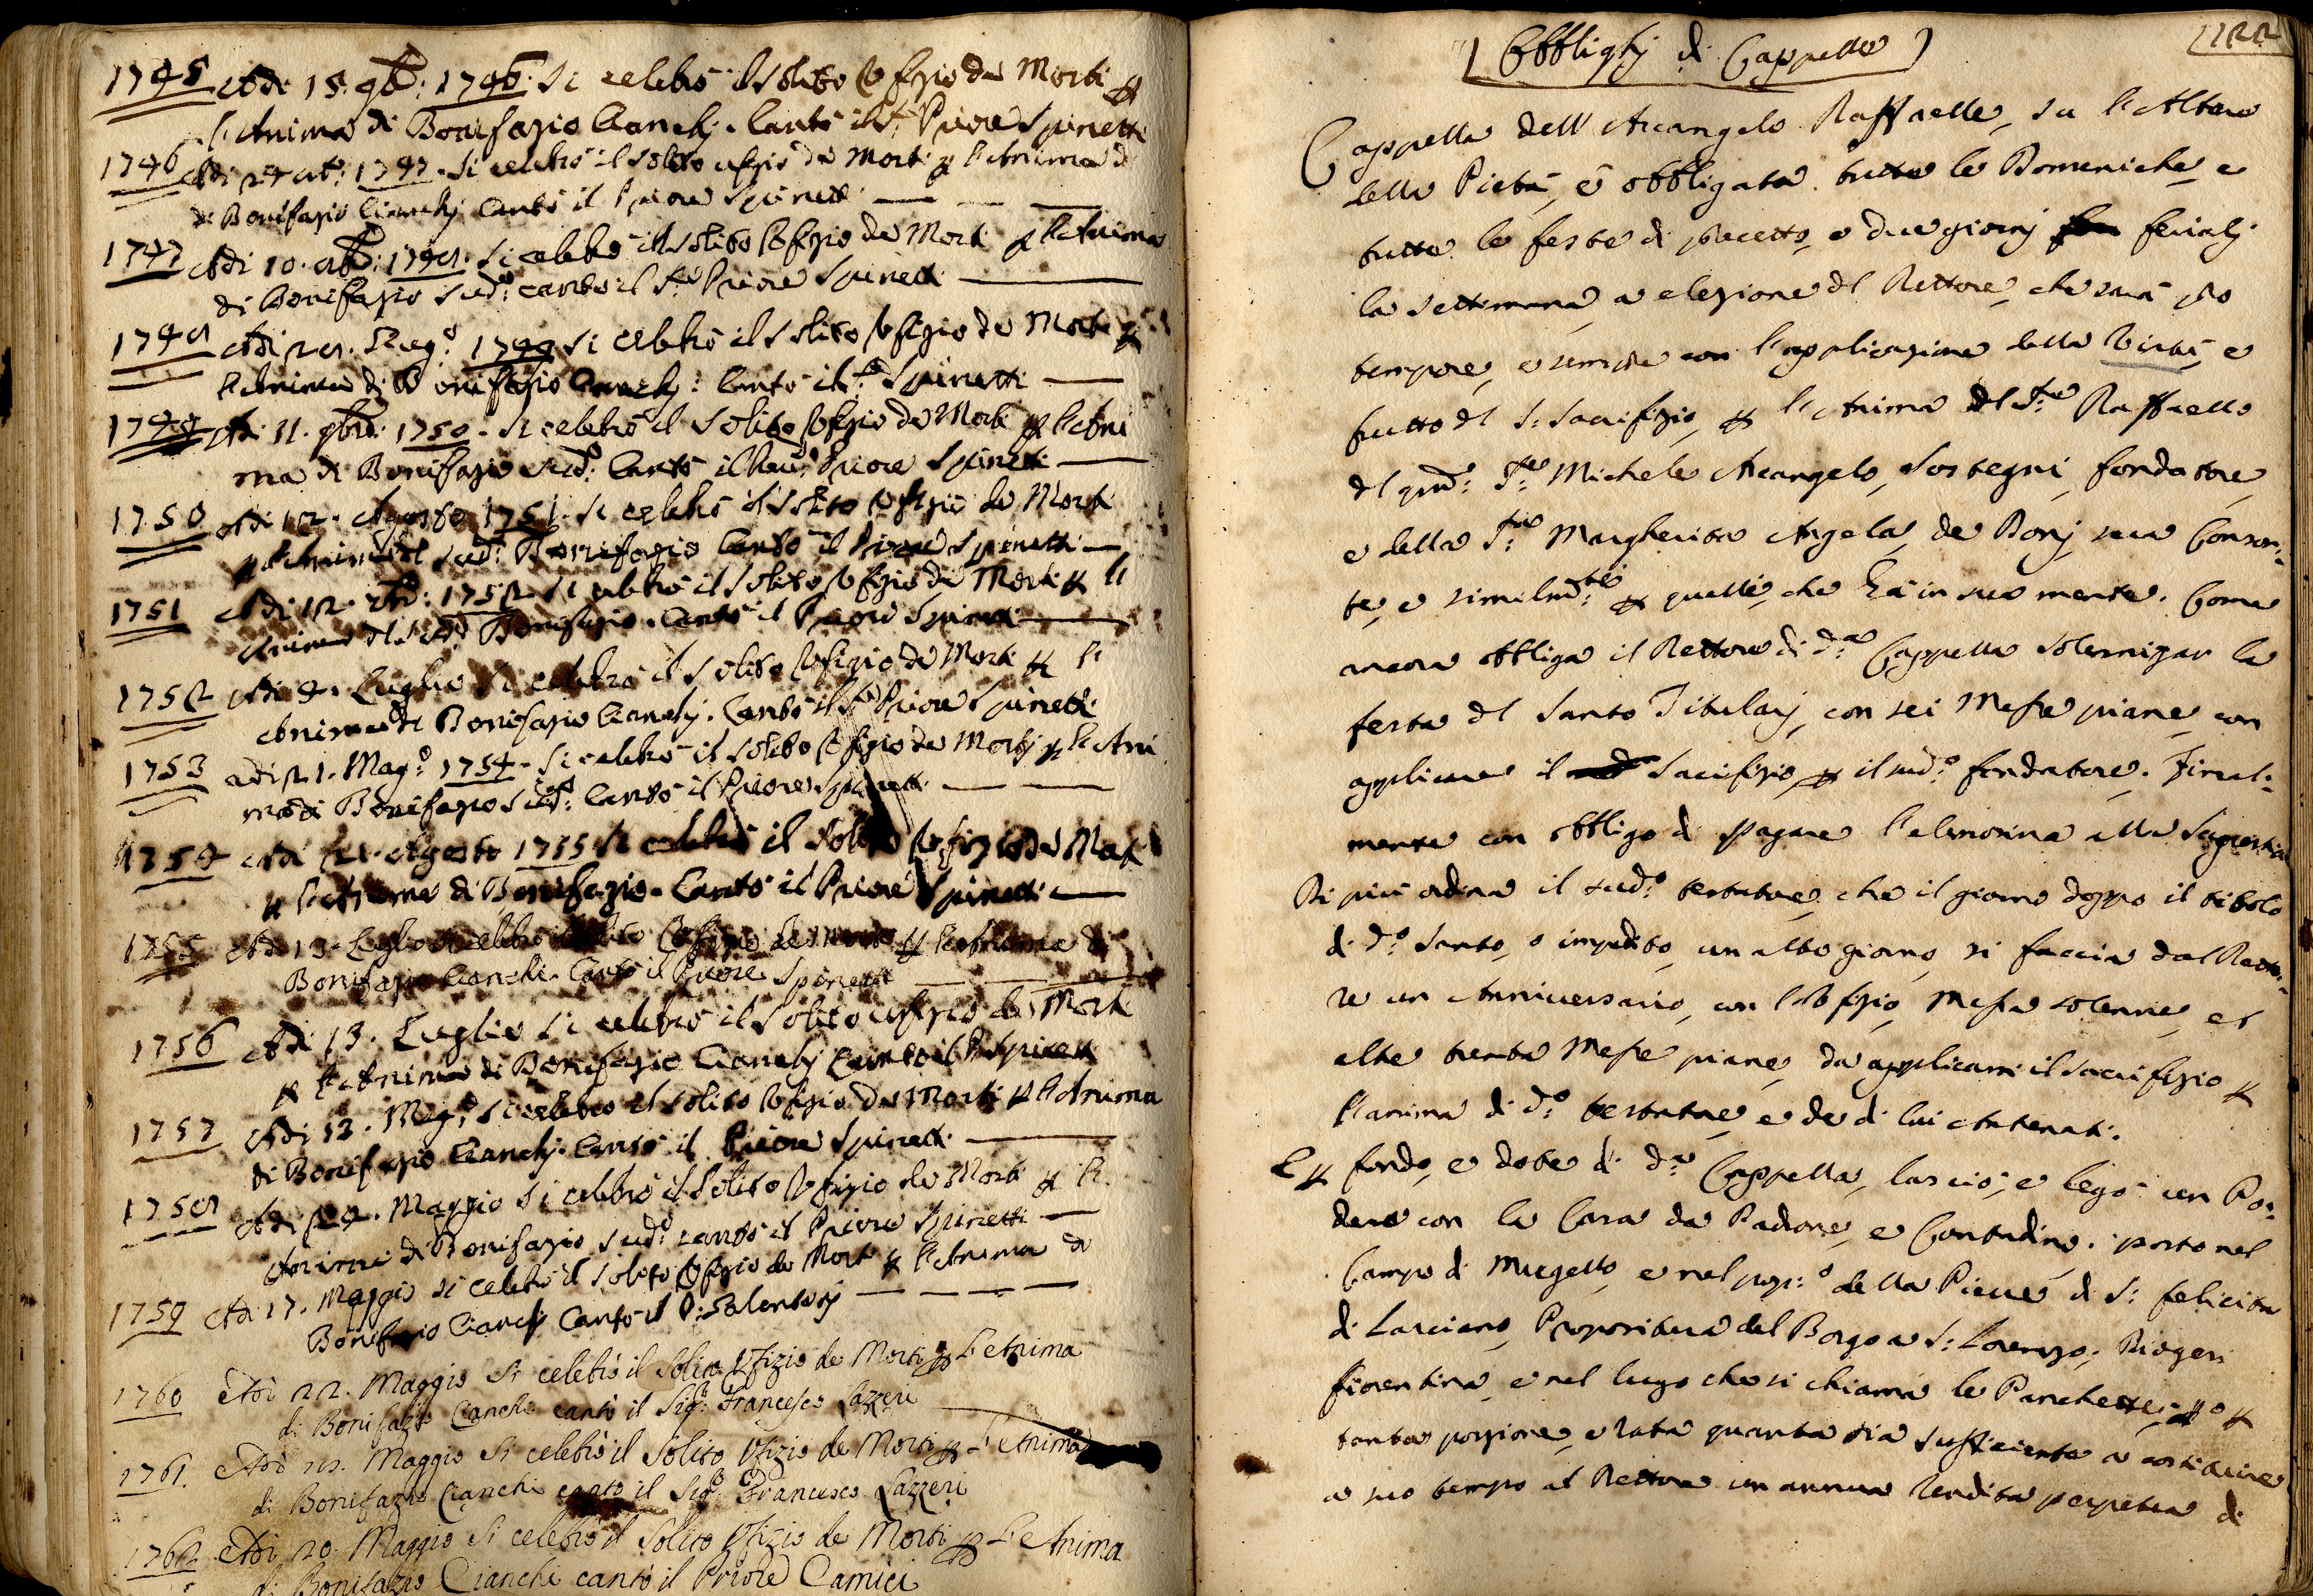 1745 Adi 15. 9b: 1746. Si celebrò il solito Ofizio de Morti p
l'Anima di Bonifazio Cianchj. Cantò il Sr. Priore Spinetti
1746 Adi 1747. Si celebrò il solito ufizio de Morti p l'Anima di
di Bonifazio Cianchj Cantò il Priore Spinetti
1747 Adi 10. si celebrò il solito Ofizio de Morti p l'Anima
di Bonifazio sudo: cantò il Sr. Priore Spinetti
Adi 1749 si celebrò il solito Ofizio de Morti p
l'Anima di Bonifazio Cianchj: Cantò il Spinetti
1749 Adi 11. 1750. Si celebrò il solito Ofizio de Morti p l'Ani
ma di Bonifazio sudo: Cantò il Priore Spinetti
1750 Adi 12. Agosto 1751. si celebrò il solito Ofizio de Morti
p l'Anima del sudo: Bonifazio Cantò il Priore Spinetti
1751 Adi 12. 1752 si celebrò il solito Ofizio de Morti p l'
Anima del sudo Bonifazio. Cantò il Priore Spinetti
1752 Adi 4. Luglio Si celebrò il solito Ofizio de Morti p l'
Anima di Bonifazio Cianchj. Cantò il Sr. Priore Spinetti
1753 adi 21. Mago: 1754. Si celebrò il solito Ofizio de Mortj p l'Ani
ma di Bonifazio sudo: Cantò il Priore Spinetti
1754 Adi Agosto 1755 Si celebrò il solito Ofizio de Morti
p l'Anima di Bonifazio. Cantò il Priore Spinetti
1755 Adi 13. Luglio si celebrò il solito Ofizio de Morti p l'Anima di
Bonifazio Cianchi. Cantò il Priore Spinetti
1756 Adi 13. Luglio si celebrò il solito ufizio de Morti
p l'Anima di Bonifazio Cianchj Cantò il P. Spinetti
1757 Adi 13. Mago: si celebrò il solito Ofizio de Morti p l'Anima
di Bonifazio Cianchj. Cantò il Priore Spinetti
Adi 24. Maggio si celebrò il Solito Ofizio de Morti p l'
Anima di Bonifazio sudo: cantò il Priore Spinetti
1759 Adi 17. Maggio si celebrò il solito Ofizio de Morti p l'Anima di
Bonifazio Cianchj Cantò il
1760 Adi 22. Maggio Si celebrò il Solito Ufizio de Morti p L'Anima
di Bonifazio Cianchi cantò il Sigr: Francesco Lazzeri
1761. Adi Maggio Si celebrò il Solito Ufizio de Morti p L'Anima
di Bonifazio Cianchi cantò il Sigr: Francesco Lazzeri
1762 Adi 20. Maggio Si celebrò il Solito Ufizio de Morti p L'Anima
di Bonifazio Cianchi cantò il Priore Camici
Obblighj di Cappelle
122
Cappella dell'Arcangelo Raffaelle, su l'Altare
della Pietà, è obbligata tutte le Domeniche, e
tutte le feste di precetto, e due giornj ferialj
la settimana, a elezione del Rettore, che sarà pro
tempore, e sempre con l'applicazione della Virtù, e
frutto del S: Sacrifizio, p l'Anima del Sre Raffaello
del qmo: Sre Michele Arcangelo, Sostegni, fondatore,
e della Sra Margherita Angela, de Bonj sua Consor:
te, e similmte: p quelli, che hà in sua mente. Come
ancora obbliga il Rettore di da Cappella solennizar la
festa del Santo Titularj, con sei Messe piane, con
applicare il Sacrifizio, p il sudo: fondatore. Final:
mente con obbligo di pagare l'elemosina alla Sagrestia
Di più ordina il sudo: testatore, che il giorno doppo il titolo
di do: Santo, o impedito, un altro giorno, si faccia dal Retto:
re un Anniversario, con l'Ofizio, Messa solenne, et
altre trenta Messe piane, da applicarsi il sacrifizio p
l'anima di do: testatore, e de di lui Antenati.
E p fondo, e dote di da: Cappella, lasciò, e legò un Po:
dere con la Casa da Padrone, e Contadino. posto nel
Campo di Mugello, e nel popo: della Pieve di S: felicita
di Larciano, Propositura del Borgo a S: Lorenzo; Diogesi
fiorentina, e nel luogo che si chiama le Panchette; p
tanta porzione, e rata quanta sia sufficiente a costituire
a suo tempo al Rettore un annua rendita perpetua di